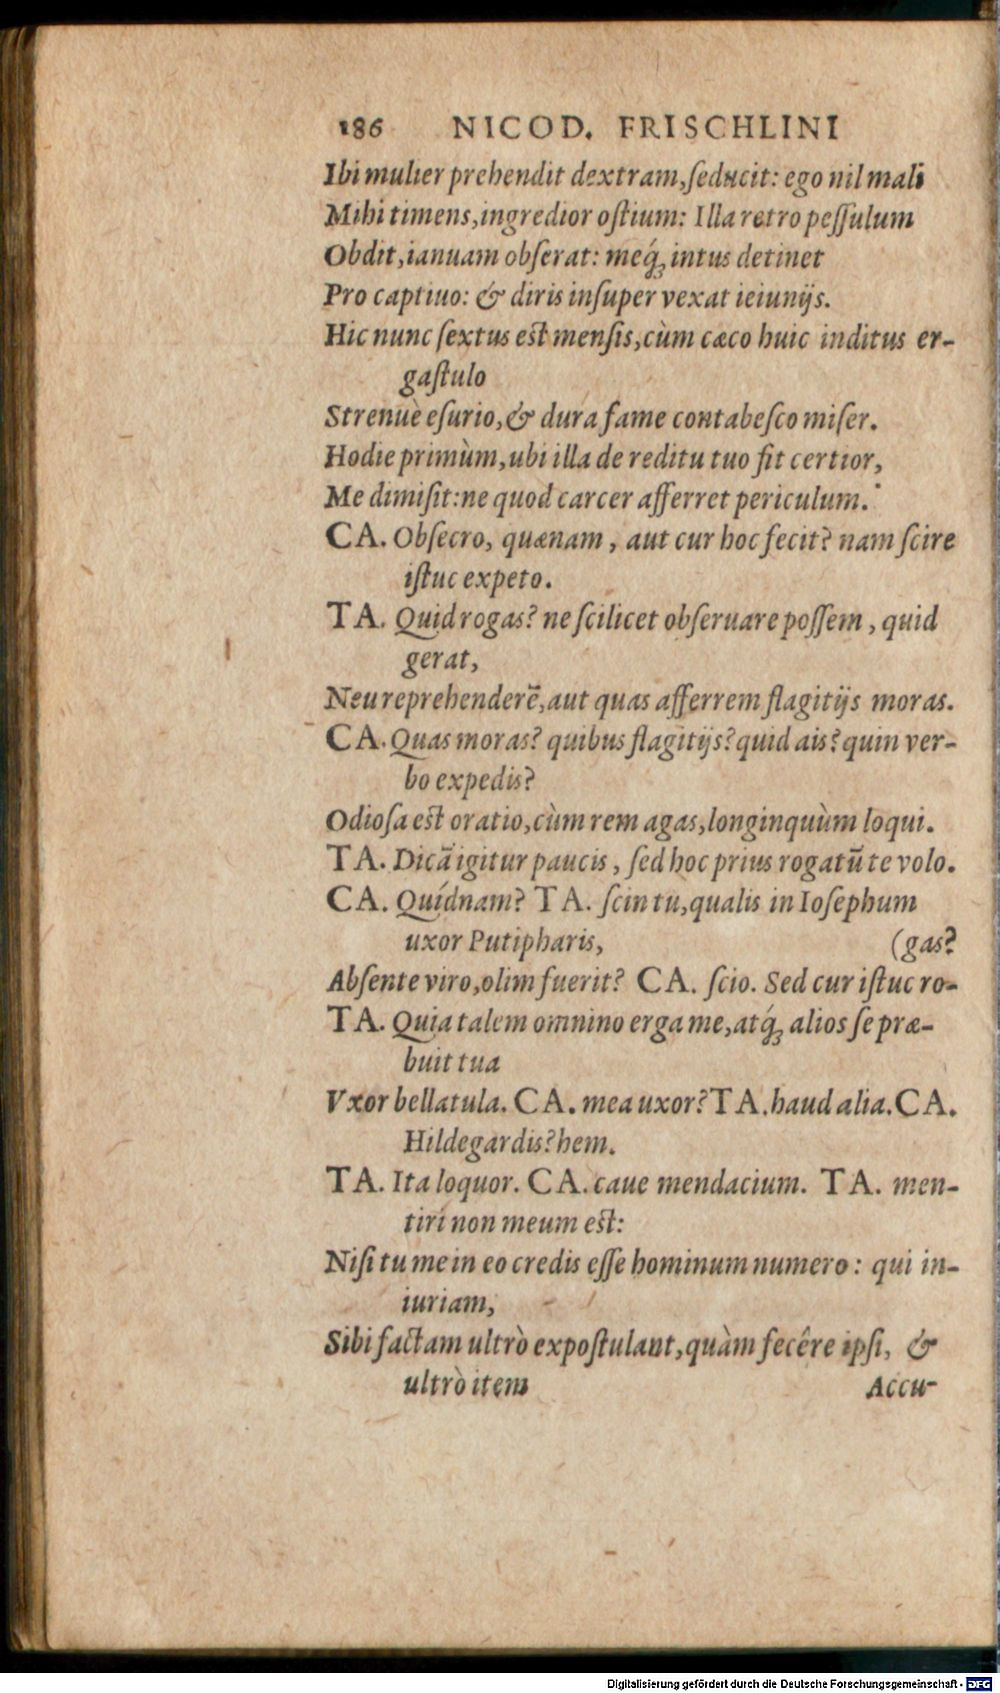 186 NICOD. FRISCHLINI
Ibi mulier prehendit dextram, ſeducit: ego nil mali
Mihi timens, ingredior oſtium: Illa retro peſſulum
Obdit, ianuam obſerat: meq́ꝫ intus detinet
Pro captiuo: & diris inſuper vexat ieiunijs.
Hic nunc ſextus eſt menſis, cùm cæco huic inditus er-
gaſtulo
Strenuè eſurio, & dura fame contabeſco miſer.
Hodie primùm, ubi illa de reditu tuo fit certior,
Me dimiſit: ne quod carcer afferret periculum.
CA. Obſecro, quænam, aut cur hoc fecit? nam ſcire
iſtuc expeto.
TA. Quid rogas? ne ſcilicet obſeruare poſſem, quid
gerat,
Neu reprehenderē, aut quas afferrem flagitijs moras.
CA. Quas moras? quibus flagitijs? quid ais? quin ver-
bo expedis?
Odioſa eſt oratio, cùm rem agas, longinquùm loqui.
TA. Dicā igitur paucis, ſed hoc prius rogatū te volo.
CA. Quídnam? TA. ſcin tu, qualis in Ioſephum
uxor Putipharis, (gas?
Abſente viro, olim fuerit? CA. ſcio. Sed cur iſtuc ro-
TA. Quia talem omnino erga me, atq́ꝫ alios ſe præ-
buit tua
Vxor bellatula. CA. mea uxor? TA. haud alia. CA.
Hildegardis? hem.
TA. Ita loquor. CA. caue mendacium. TA. men-
tiri non meum eſt:
Niſi tu me in eo credis eſſe hominum numero: qui in-
iuriam,
Sibi factam ultrò expoſtulant, quàm fecêre ipſi, &
ultrò item Accu-
Digitalisierung gefördert durch die Deutsche Forschungsgemeinschaft - DFG